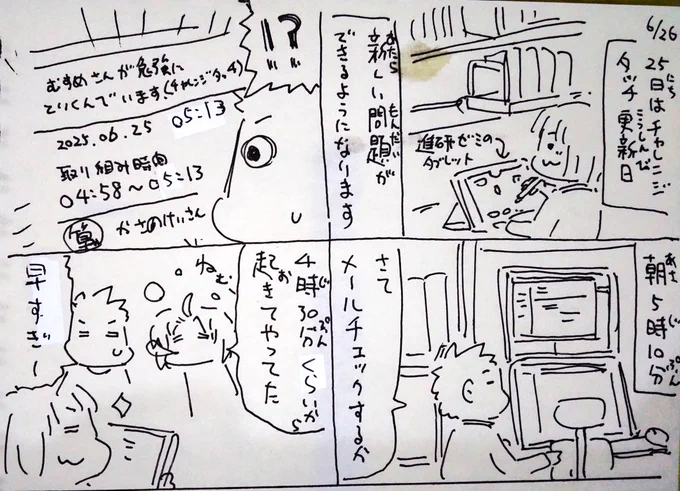 6/26
25日はチャレンジ
タッチ更新日
にち
こうしんび
進研ゼミの
タブレット
新しい問題が
できるようになります
あたら
もんだい
朝5時10分
あさ
じ
ぷん
さて
メールチェックするか
!?
むすめさんが勉強に
とりくんでいます(チャレンジタッチ)
05:13
2025.06.25
取り組み時間
04:58〜05:13
算
かさのけいさん
4時30分くらいから
起きてやってた
じ
ぷん
お
ねむ
早すぎー